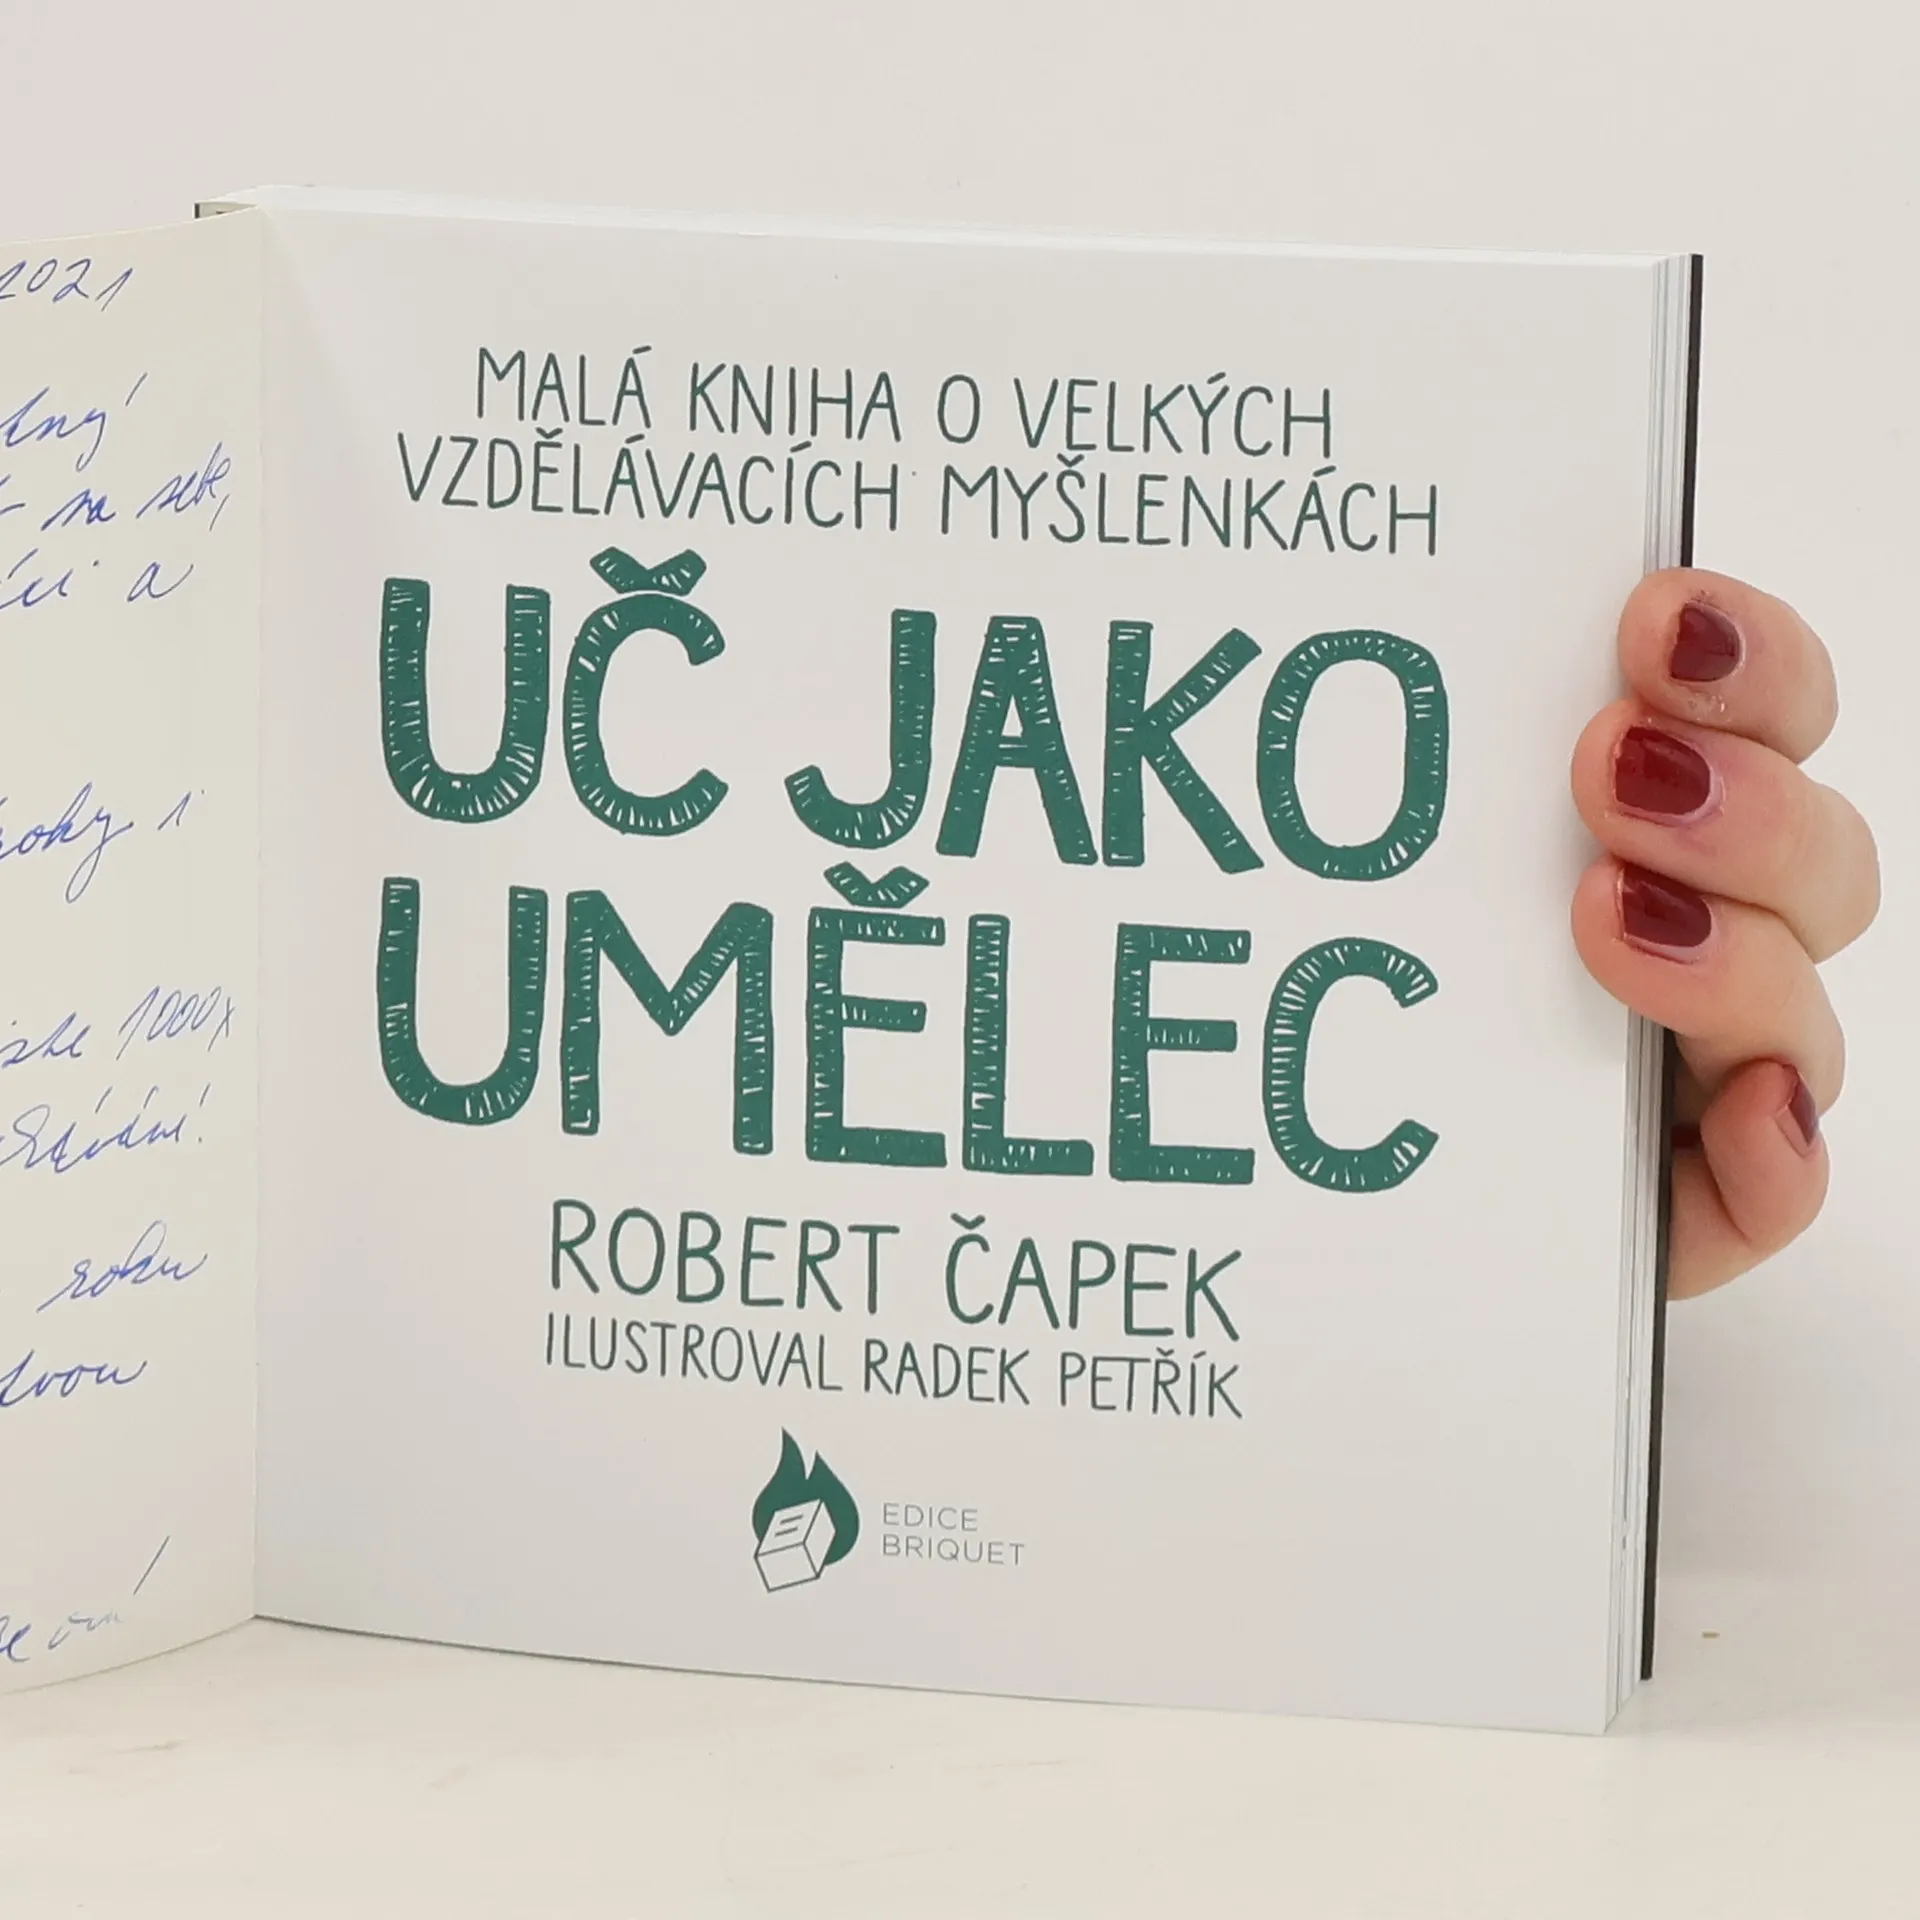 2021
na sebe,
a
roky i
1000x
roku
MALÁ KNIHA O VELKÝCH
VZDĚLÁVACÍCH MYŠLENKÁCH
UČ JAKO
UMĚLEC
ROBERT ČAPEK
ILUSTROVAL RADEK PETŘÍK
EDICE
BRIQUET